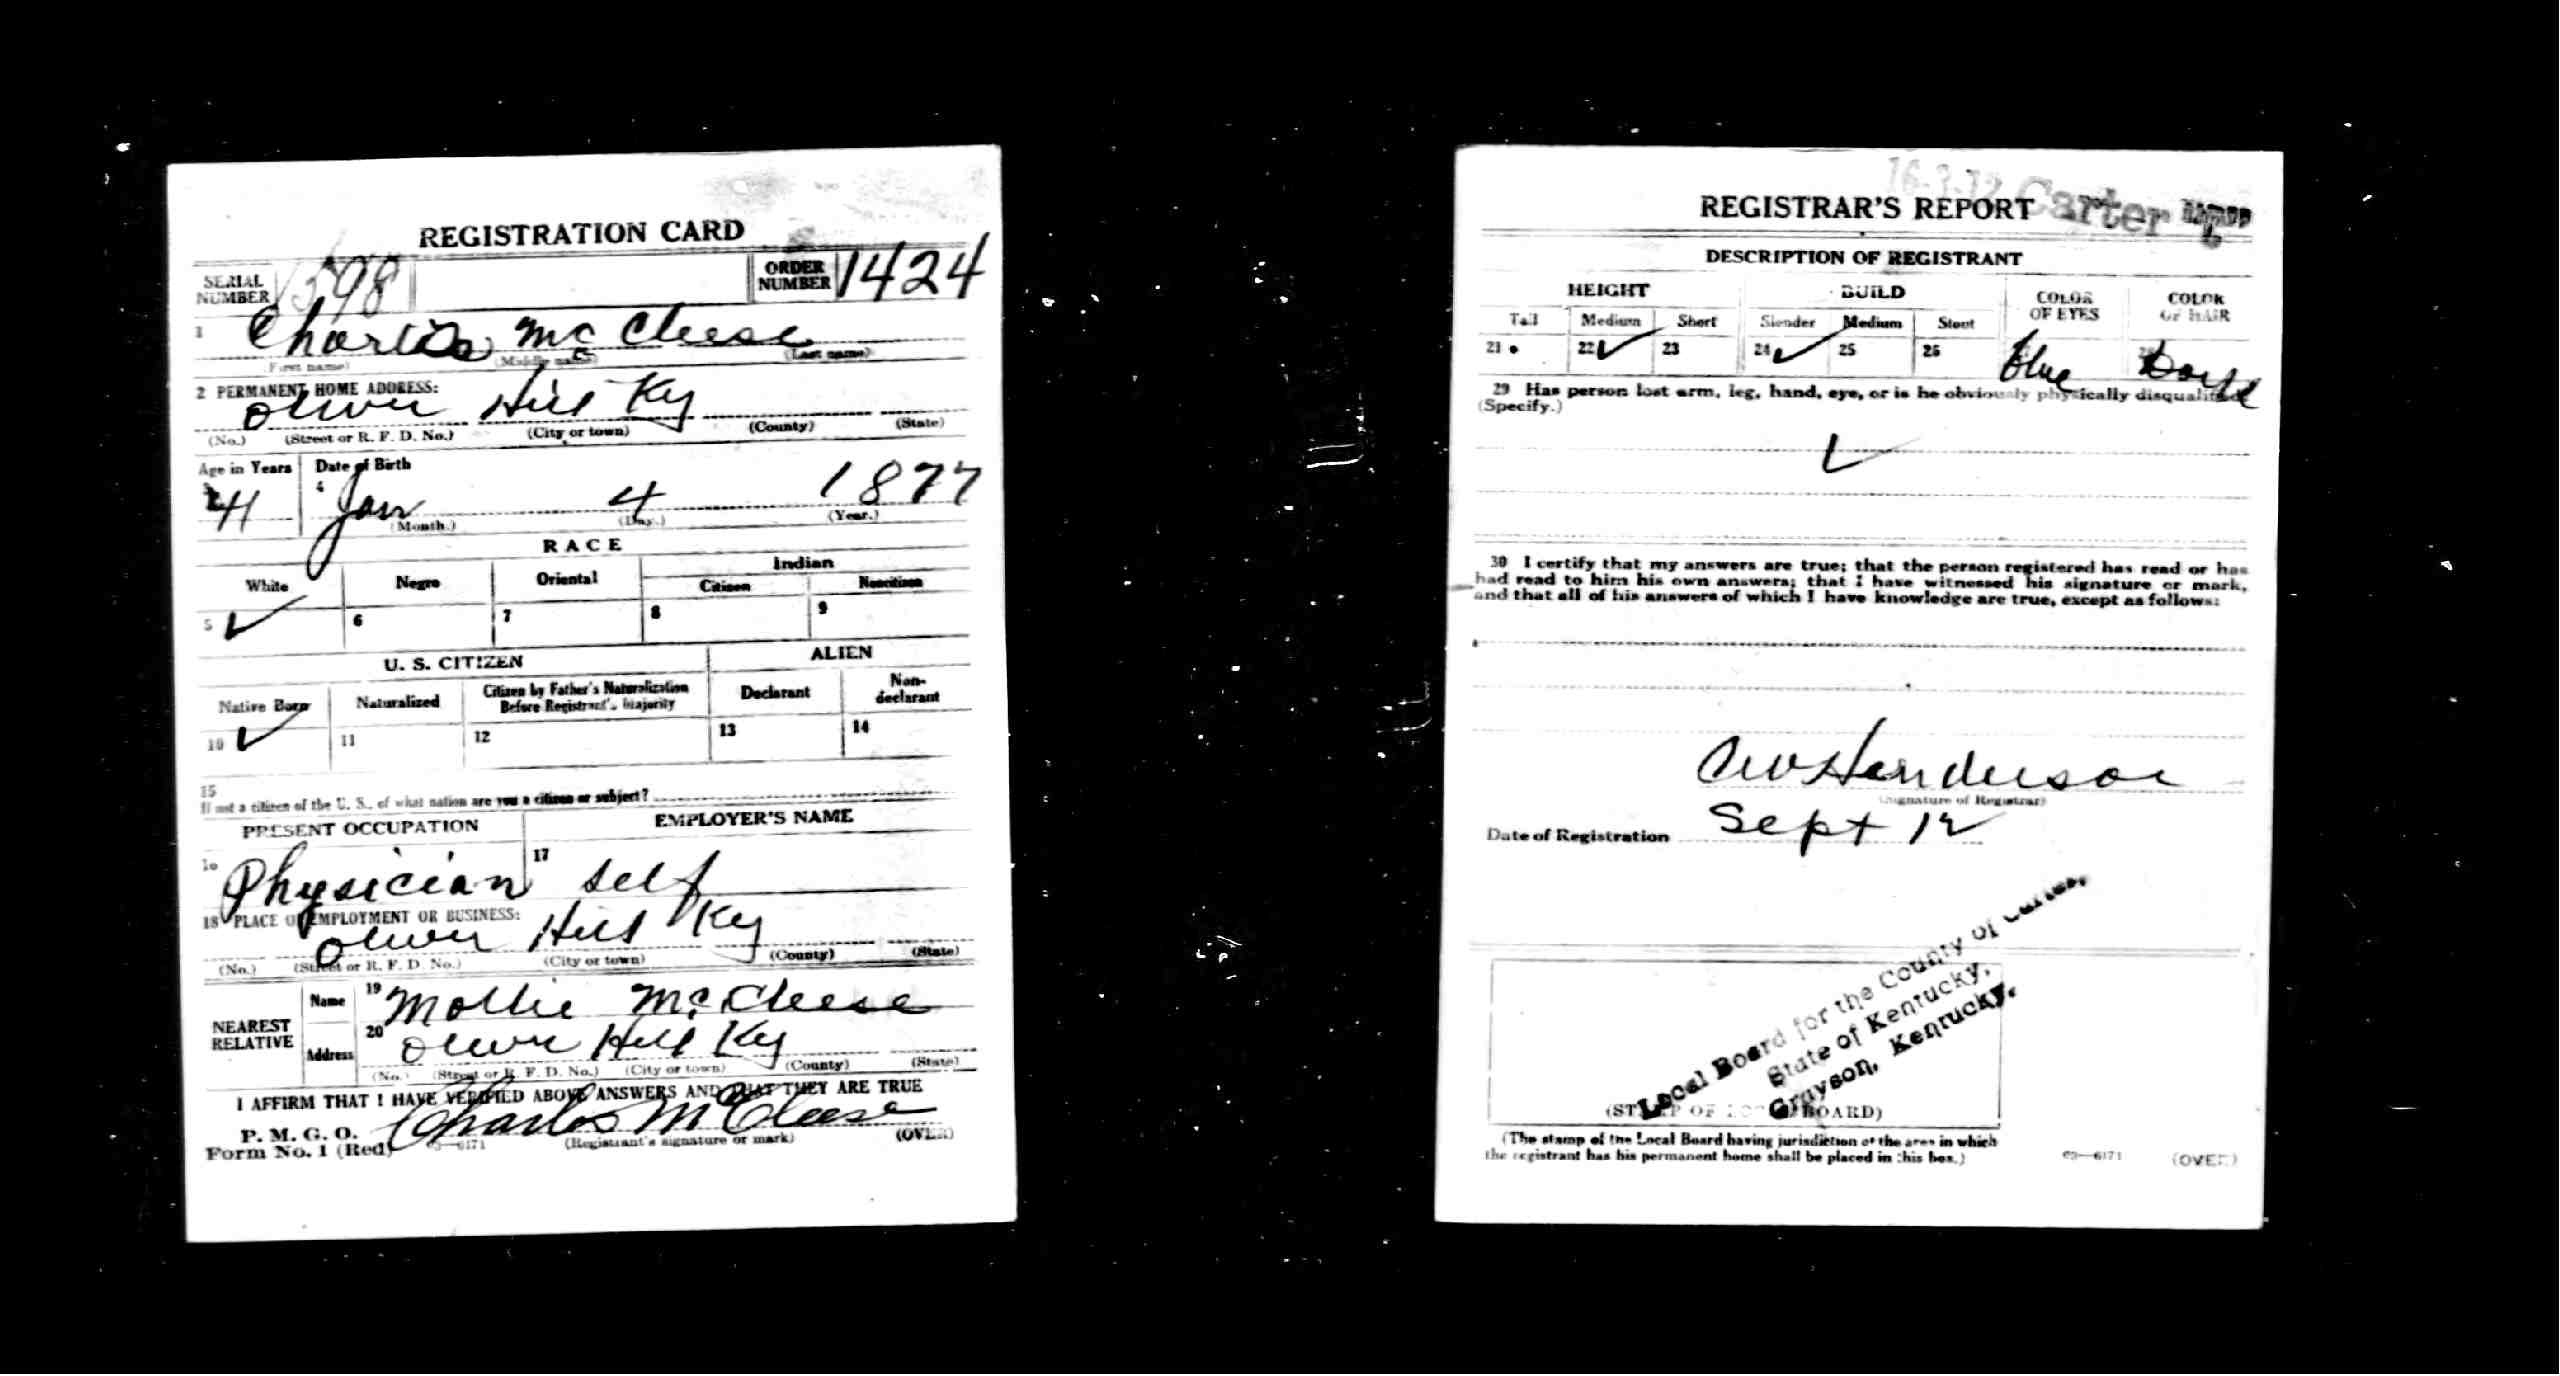 REGISTRATION CARD
SERIAL NUMBER 1598 ORDER NUMBER 1424
1 Charles Mc Cleese
(First name) (Middle name) (Last name)
2 PERMANENT HOME ADDRESS:
Olive Hill Ky
(No.) (Street or R. F. D. No.) (City or town) (County) (State)
Age in Years Date of Birth
3 41 4 Jan 4 1877
(Month.) (Day.) (Year.)
RACE
White Negro Oriental Indian
Citizen Noncitizen
5 ✓ 6 7 8 9
U. S. CITIZEN ALIEN
Native Born Naturalized Citizen by Father's Naturalization Before Registrant's Majority Declarant Non-declarant
10 ✓ 11 12 13 14
15
If not a citizen of the U. S., of what nation are you a citizen or subject?
PRESENT OCCUPATION EMPLOYER'S NAME
16 Physician 17 Self
18 PLACE OF EMPLOYMENT OR BUSINESS:
Olive Hill Ky
(No.) (Street or R. F. D. No.) (City or town) (County) (State)
NEAREST RELATIVE
Name 19 Mollie McCleese
Address 20 Olive Hill Ky
(No.) (Street or R. F. D. No.) (City or town) (County) (State)
I AFFIRM THAT I HAVE VERIFIED ABOVE ANSWERS AND THAT THEY ARE TRUE
P. M. G. O.
Form No. 1 (Red) 03—6171 Charles McCleese
(Registrant's signature or mark) (OVER)
Carter
REGISTRAR'S REPORT
DESCRIPTION OF REGISTRANT
HEIGHT BUILD COLOR OF EYES COLOR OF HAIR
Tall Medium Short Slender Medium Stout
21 22 ✓ 23 24 ✓ 25 26 blue
29 Has person lost arm, leg, hand, eye, or is he obviously physically disqualified?
(Specify.)
✓
30 I certify that my answers are true; that the person registered has read or has
had read to him his own answers; that I have witnessed his signature or mark,
and that all of his answers of which I have knowledge are true, except as follows:
Henderson
(Signature of Registrar)
Date of Registration Sept 12
Local Board for the County of Carter,
State of Kentucky,
Grayson, Kentucky.
(STAMP OF LOCAL BOARD)
(The stamp of the Local Board having jurisdiction of the area in which
the registrant has his permanent home shall be placed in this box.)
03—6171 (OVER)